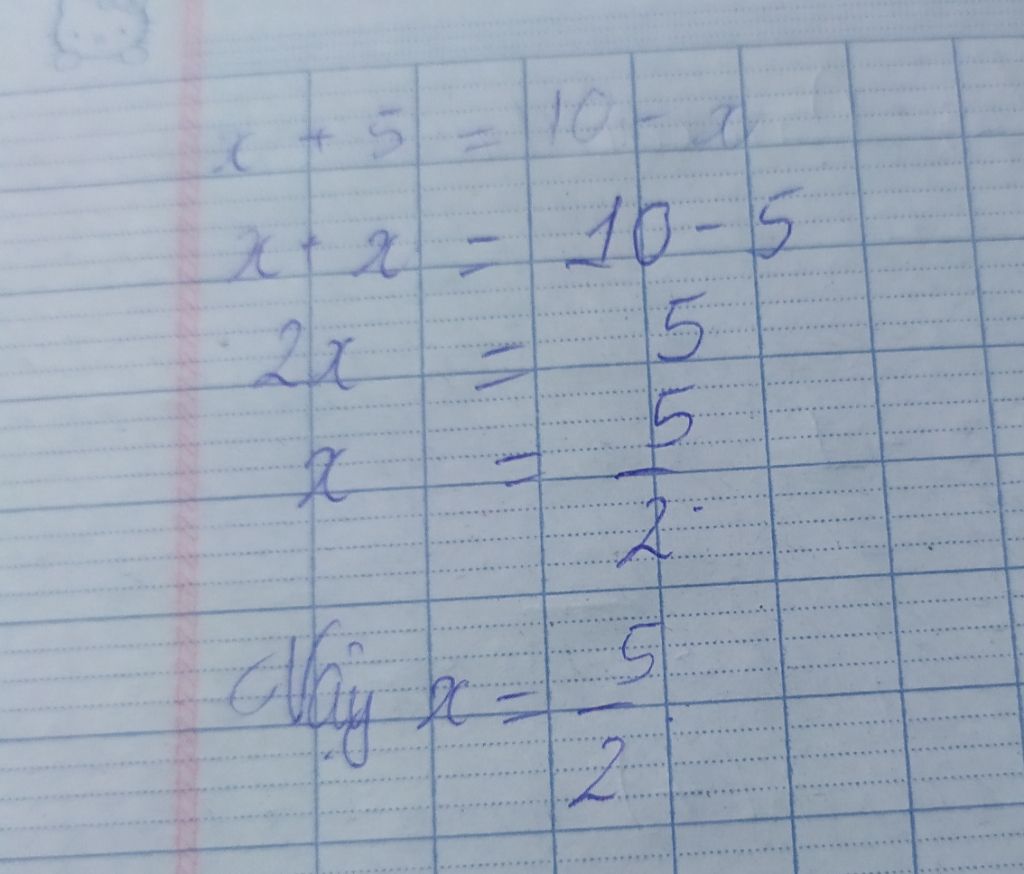 x + 5 = 10 - x
x + x = 10 - 5
2x = 5
x = 5/2
Vậy x = 5/2